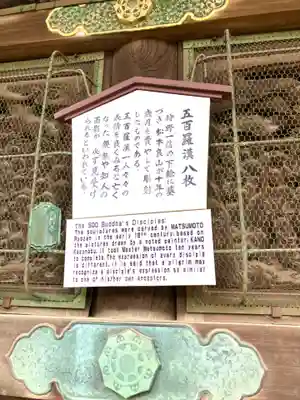 五百羅漢 八枚
狩野一信の下絵に基
づき松本良山が十年の
歳月を費やして彫刻
したものである
五百羅漢一人々々の
表情を良くみると亡く
なった親兄弟や知人の
面影が必ず見受け
られるといわれている
The 500 Buddha's Disciples:
The sculptures were carved by MATSUMOTO
Ryozan in the early 19th century, based on
the pictures drawn by a noted painter, KANO
Kazunobu. It took Master Matsumoto ten years
to complete. The expression of every disciple
is different. It is said that a pilgrim may
recognize a disciple's expression so similar
to one of his/her own ancestors.